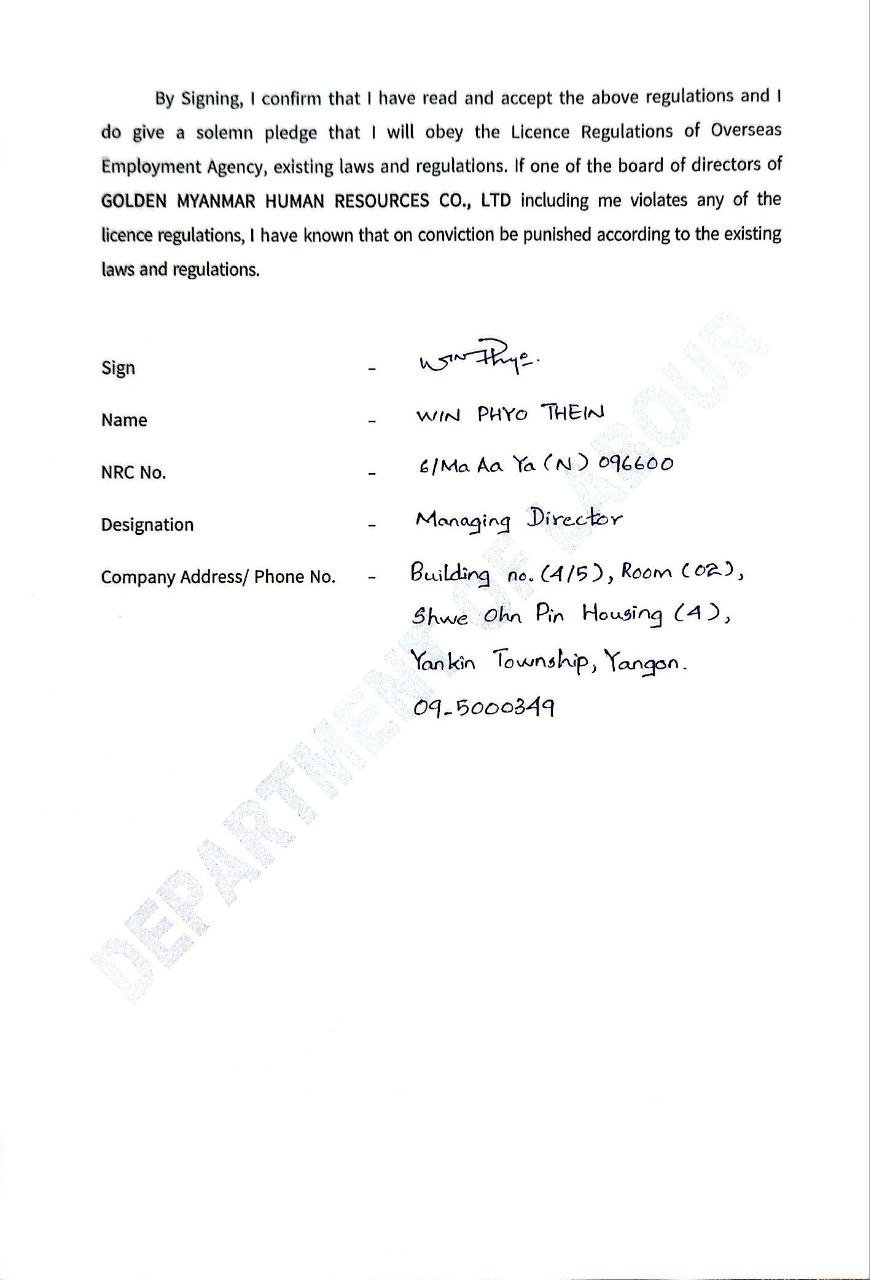 By Signing, I confirm that I have read and accept the above regulations and I
do give a solemn pledge that I will obey the Licence Regulations of Overseas
Employment Agency, existing laws and regulations. If one of the board of directors of
GOLDEN MYANMAR HUMAN RESOURCES CO., LTD including me violates any of the
licence regulations, I have known that on conviction be punished according to the existing
laws and regulations.
Sign - Win Phyo.
Name - WIN PHYO THEIN
NRC No. - 6/Ma Aa Ya (N) 096600
Designation - Managing Director
Company Address/ Phone No. - Building no. (4/5), Room (02),
Shwe Ohn Pin Housing (4),
Yankin Township, Yangon.
09-5000349
DEPARTMENT OF LABOUR